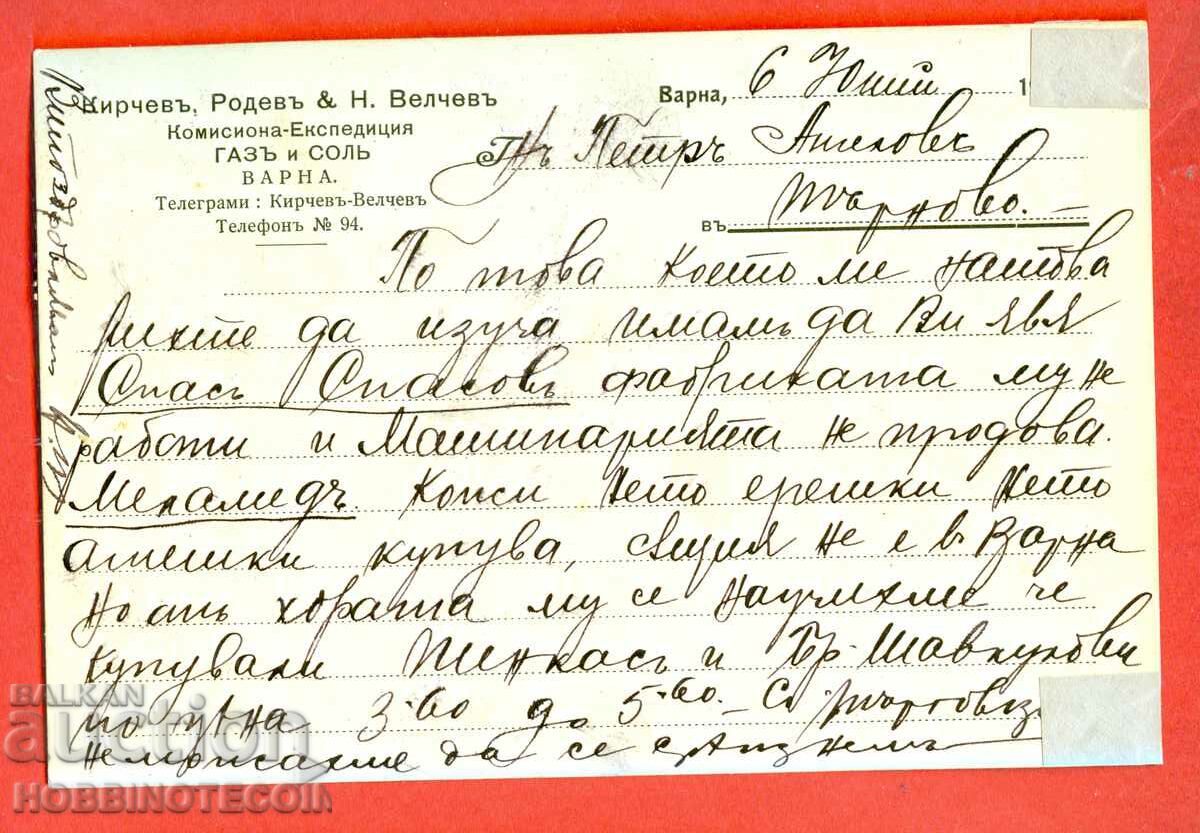 Кирчевъ, Родевъ & Н. Велчевъ
Комисиона-Експедиция
ГАЗЪ и СОЛЬ
ВАРНА.
Телеграми : Кирчевъ-Велчевъ
Телефонъ № 94.
Варна, 6 Юний 1
Г-нъ Петръ Ангеловъ
въ Търново.
По това което ми натова
рихте да изуча имамъ да Ви явя
Спасъ Спасовъ фабриката му не
работи и Машинарията не продова.
Меламедъ. Кожи нето ерешки нето
агнешки купува, не е въ Варна
но отъ хората му се научихме че
купували и Бр. Шавкулови
по цена 3·60 до 5·60. Съ
да се
BALKAN
auction
HOBBINOTECOIN